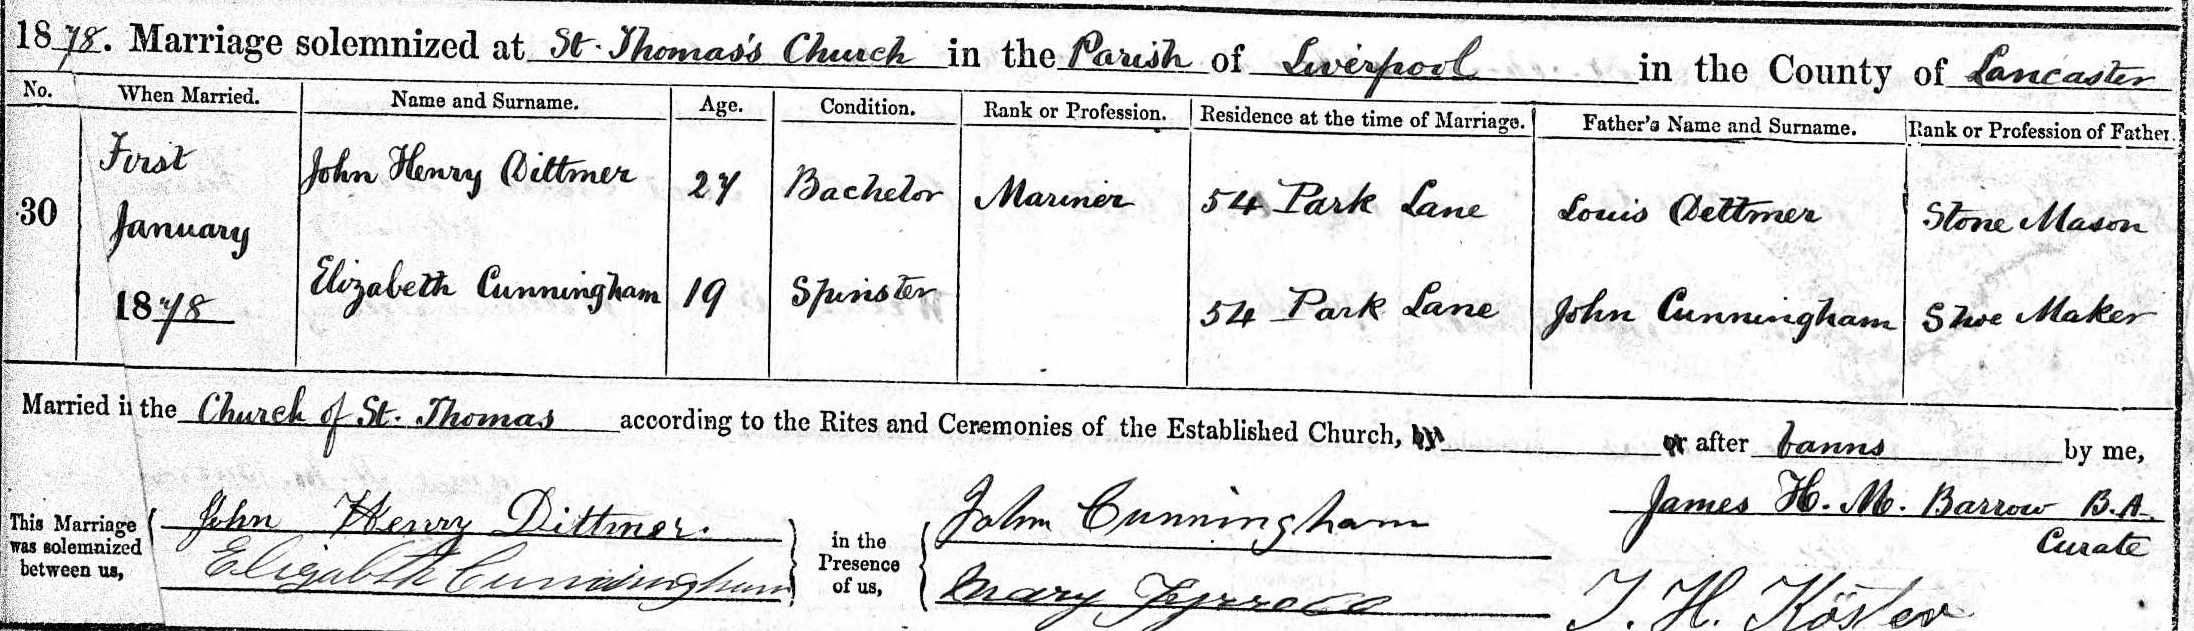 1878. Marriage solemnized at St. Thomas's Church in the Parish of Liverpool in the County of Lancaster
No. When Married. Name and Surname. Age. Condition. Rank or Profession. Residence at the time of Marriage. Father's Name and Surname. Rank or Profession of Father.
First John Henry Dittmer 27 Bachelor Mariner 54 Park Lane Louis Dettmer Stone Mason
30 January
1878 Elizabeth Cunningham 19 Spinster 54 Park Lane John Cunningham Shoe Maker
Married in the Church of St. Thomas according to the Rites and Ceremonies of the Established Church, by or after banns by me,
This Marriage was solemnized between us, John Henry Dittmer. in the Presence of us, John Cunningham James H. M. Barrow B.A.
Curate
Elizabeth Cunningham Mary T. H. Köster